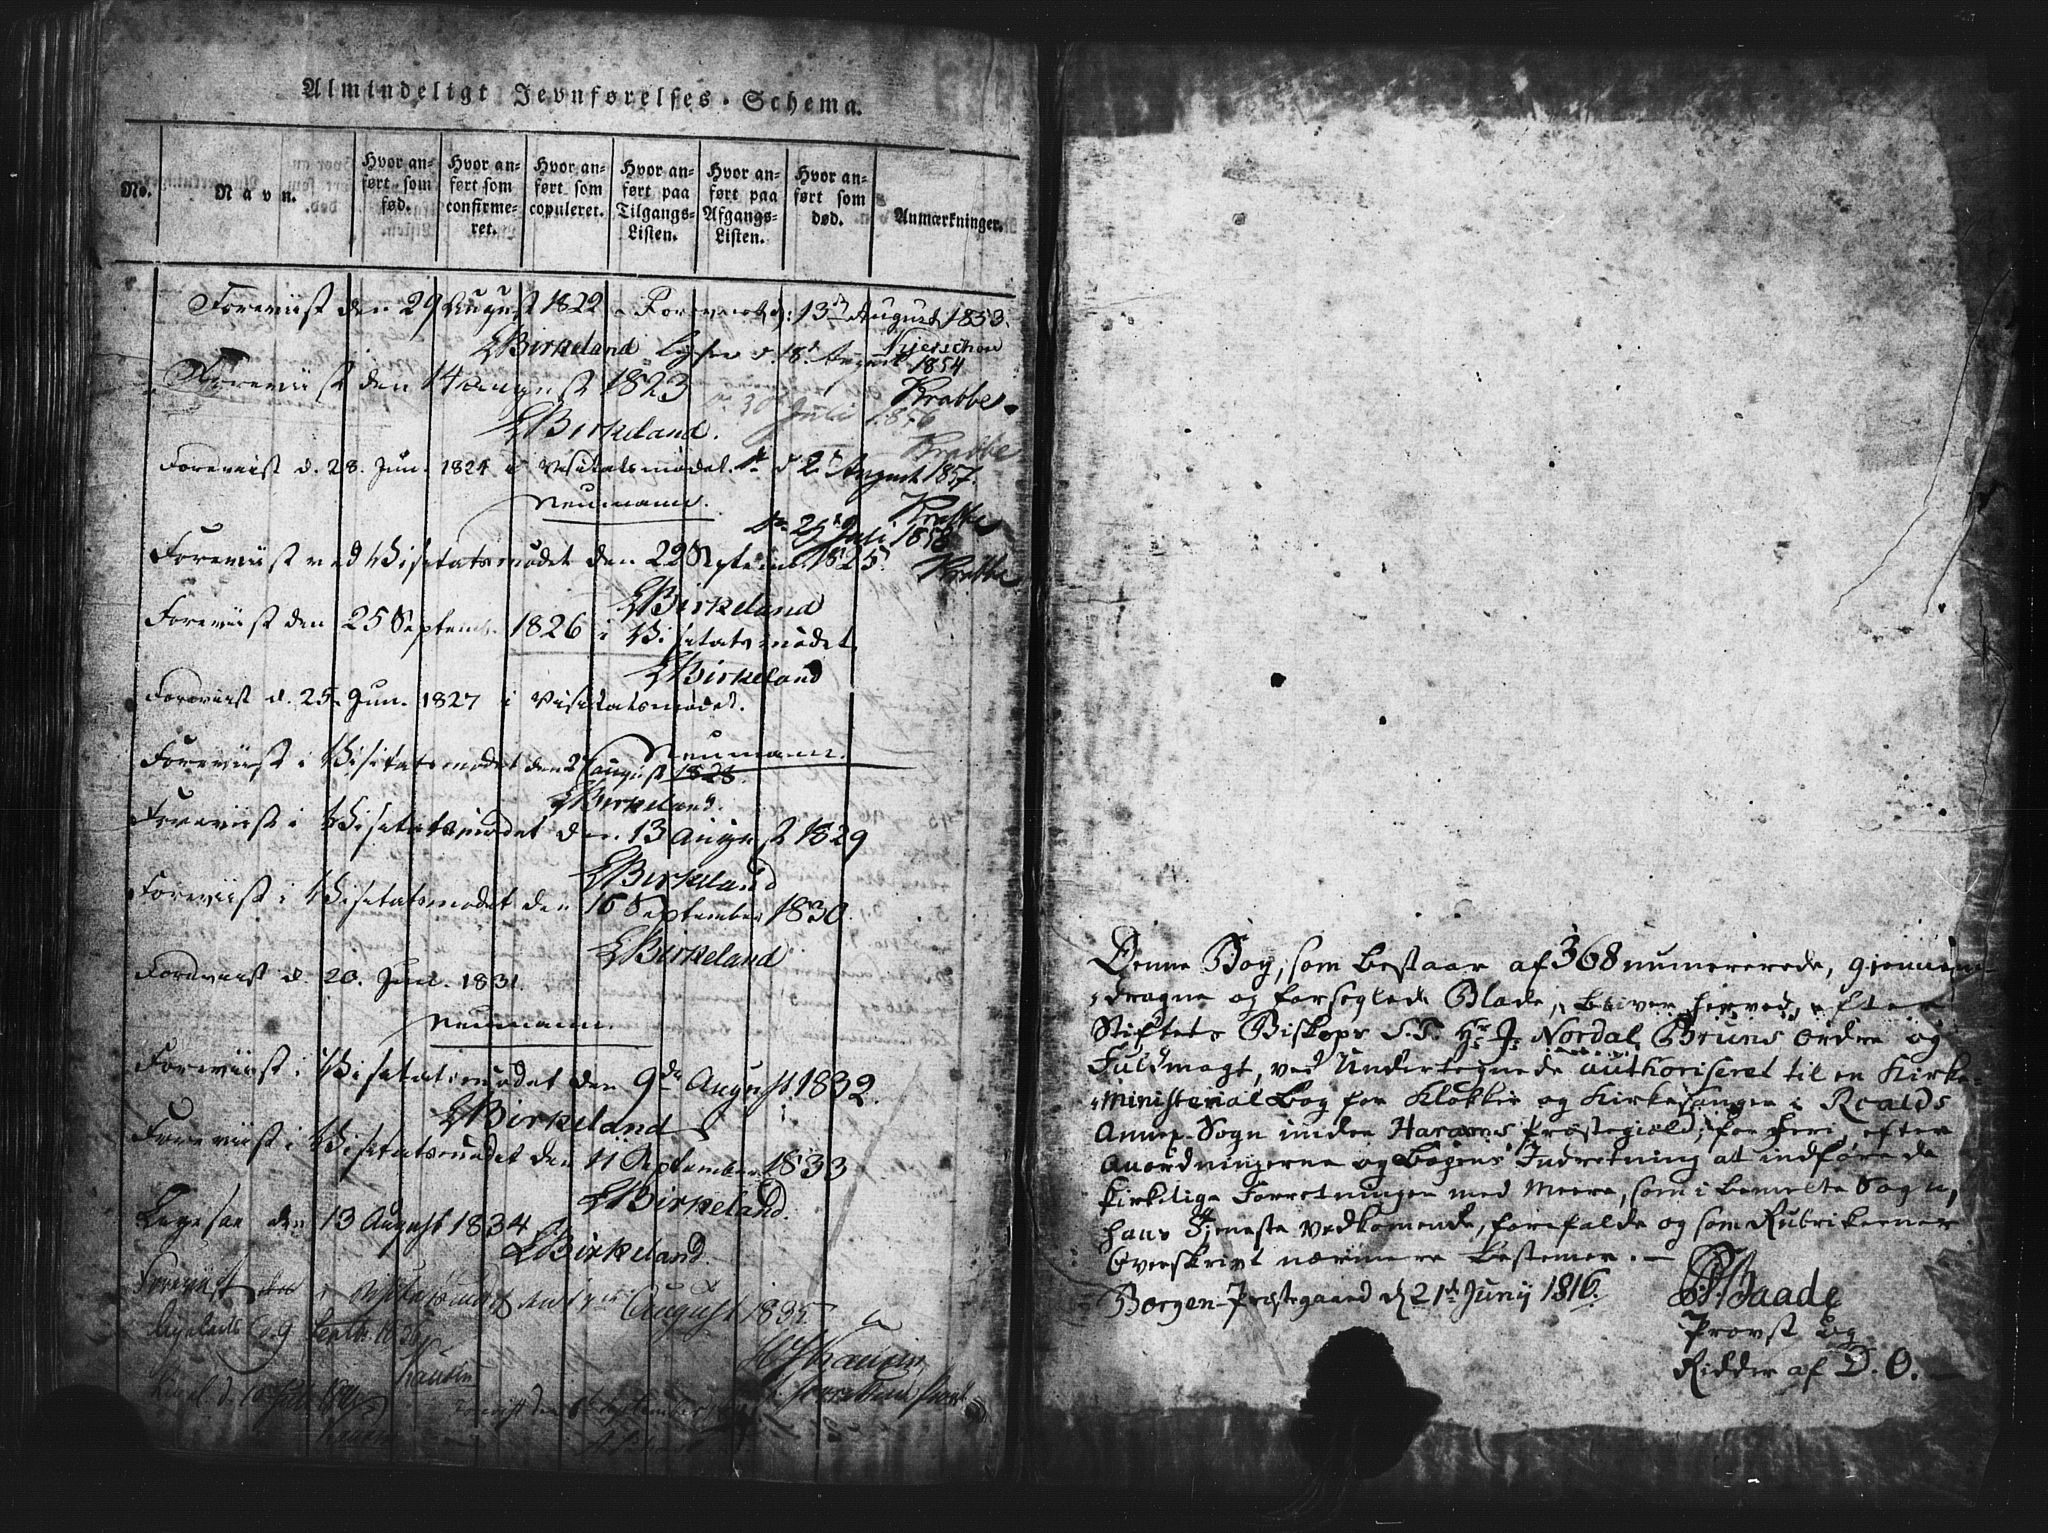 Almindeligt Jevnførelses-Schema.
No.
Navn.
Hvor anført som fød.
Hvor anført som confirmeret.
Hvor anført som copuleret.
Hvor anført paa Tilgangs-Listen.
Hvor anført paa Afgangs-Listen.
Hvor anført som død.
Anmærkninger.
Foreviist den 29 August 1822
Birkeland
Foreviist den 14 August 1823
Birkeland.
Foreviist d. 28. Jun. 1824 i Visitatsmødet.
Neumann.
Foreviist ved Visitatsmødet den 22 Septemb. 1825.
Birkeland
Foreviist den 25 Septemb. 1826 i Visitatsmødet
Birkeland
Foreviist d. 25. Jun. 1827 i Visitatsmødet.
Neumann.
Foreviist i Visitatsmødet den 27 August 1828.
Birkeland.
Foreviist i Visitatsmødet den 13 August 1829
Birkeland
Foreviist i Visitatsmødet den 16 September 1830.
Birkeland
Foreviist d. 20. Jun. 1831.
Neumann.
Foreviist i Visitatsmødet den 9de August 1832.
Birkeland
Foreviist i Visitatsmødet den 11 September 1833
Birkeland.
den 13 August 1834
Birkeland.
Foreviist i Visitatsmødet den August 1835.
Foreviist d: 13de August 1853.
Kjerschow
18de August 1854
Krabbe.
30 Juli 1856
Krabbe
d 2d August 1857.
Krabbe
29 Juli 1858
Krabbe
Denne Bog, som bestaar af 368 numererede, gjennem-
dragne og forseglede Blade, bliver herved, efter
Stiftets Biskops S.T. Hr. J. Nordal Bruns Ordre og
Fuldmagt, ved Undertegnede authoriseret til en Kirke-
Ministerial Bog for Klokker og Kirkesanger i Roalds
Annex-Sogn under Harams Præstegield, for heri, efter
Anordningerne og Bogens Indretning at indføre de
kirkelige Forretninger med Mere, som i bemelte Sogn,
hans Tjeneste vedkomende, forefalde og som Rubrikernes
Overskrivt nærmere bestemer. —
Borgen-Præstegaard d 21d Junij 1816.
Baade
Provst og
Ridder af D. O.